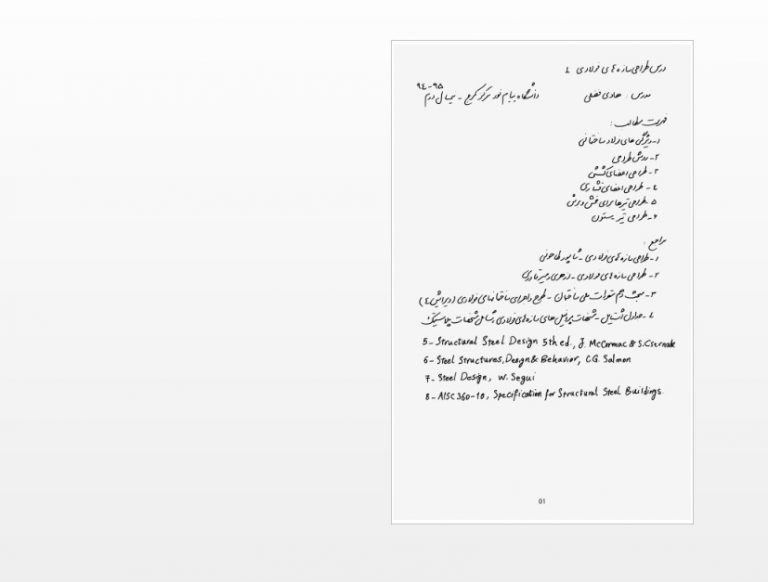 درس طراحی سازه های فولادی ۱
مدرس: هادی فضلی دانشگاه پیام نور مرکز کرج - نیمسال دوم
۹۴-۹۵
فهرست مطالب:
۱- ویژگی های فولاد ساختمانی
۲- روش طراحی
۳- طراحی اعضای کششی
۴- طراحی اعضای فشاری
۵- طراحی تیرها برای خمش و برش
۶- طراحی تیر ستون
مراجع:
۱- طراحی سازه های فولادی - شاپور طاحونی
۲- طراحی سازه های فولادی - ازهری و میرقادری
۳- مبحث دهم مقررات ملی ساختمان - طرح و اجرای ساختمانهای فولادی (ویرایش ۴)
۴- جداول اشتال - مشخصات پروفیل های سازه های فولادی شامل مشخصات پلاستیک
5- Structural Steel Design 5th ed., J. McCormac & S. Csernak
6- Steel Structures, Design & Behavior, C.G. Salmon
7- Steel Design, W. Segui
8- AISC 360-10, Specification for Structural Steel Buildings.
01